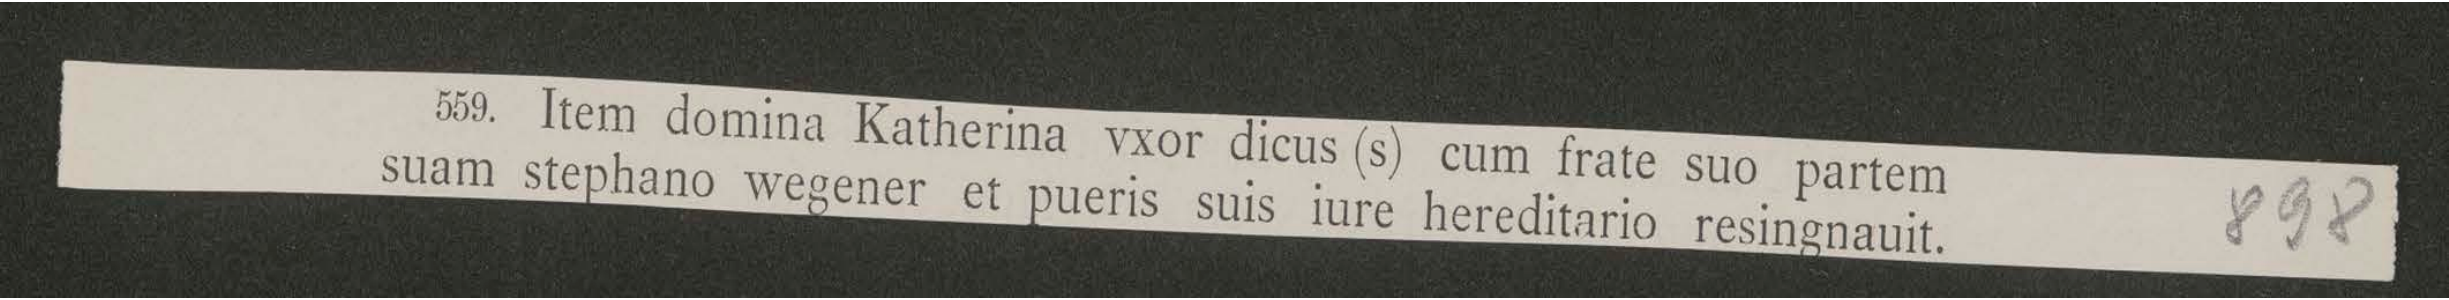 559. Item domina Katherina vxor dicus (s) cum frate suo partem
suam stephano wegener et pueris suis iure hereditario resingnauit.
898